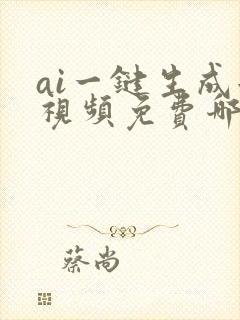 ai一鍵生成
視頻免費哪
蔡尚